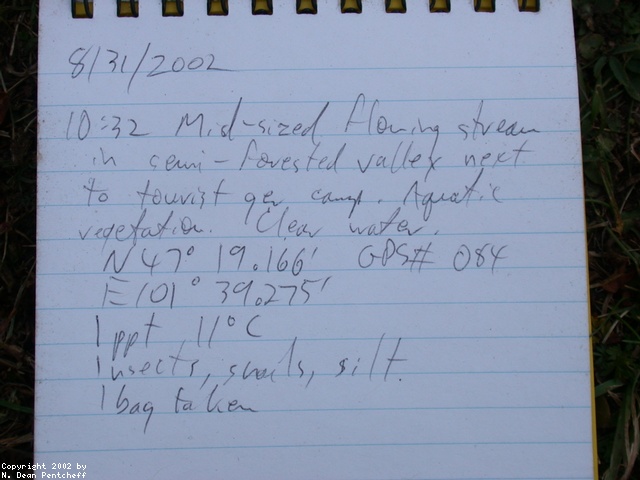 8/31/2002
10:32 Mid-sized flowing stream
in semi-forested valley next
to tourist ger camp. Aquatic
vegetation. Clear water.
N 47° 19.166' GPS# 084
E 101° 39.275'
1 ppt 11°C
Insects, snails, silt.
1 bag taken
Copyright 2002 by
N. Dean Pentcheff